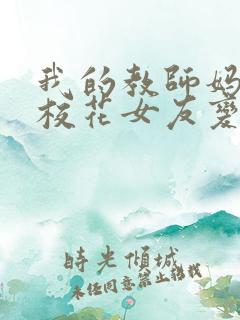 我的教師媽
校花女友變
時光傾城
未经同意禁止转载